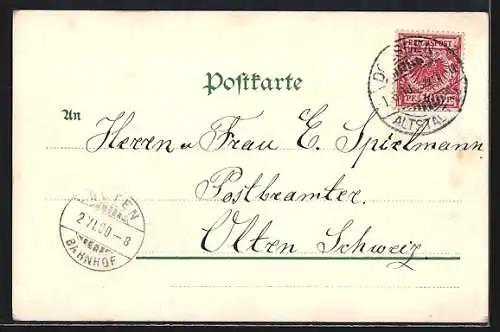 Postkarte
REICHSPOST
PFENNIG
ALTSTADT
An
Herrn u Frau E. Spielmann
Postbeamter.
Olten Schweiz
OLTEN
2.VI.00-8
BAHNHOF